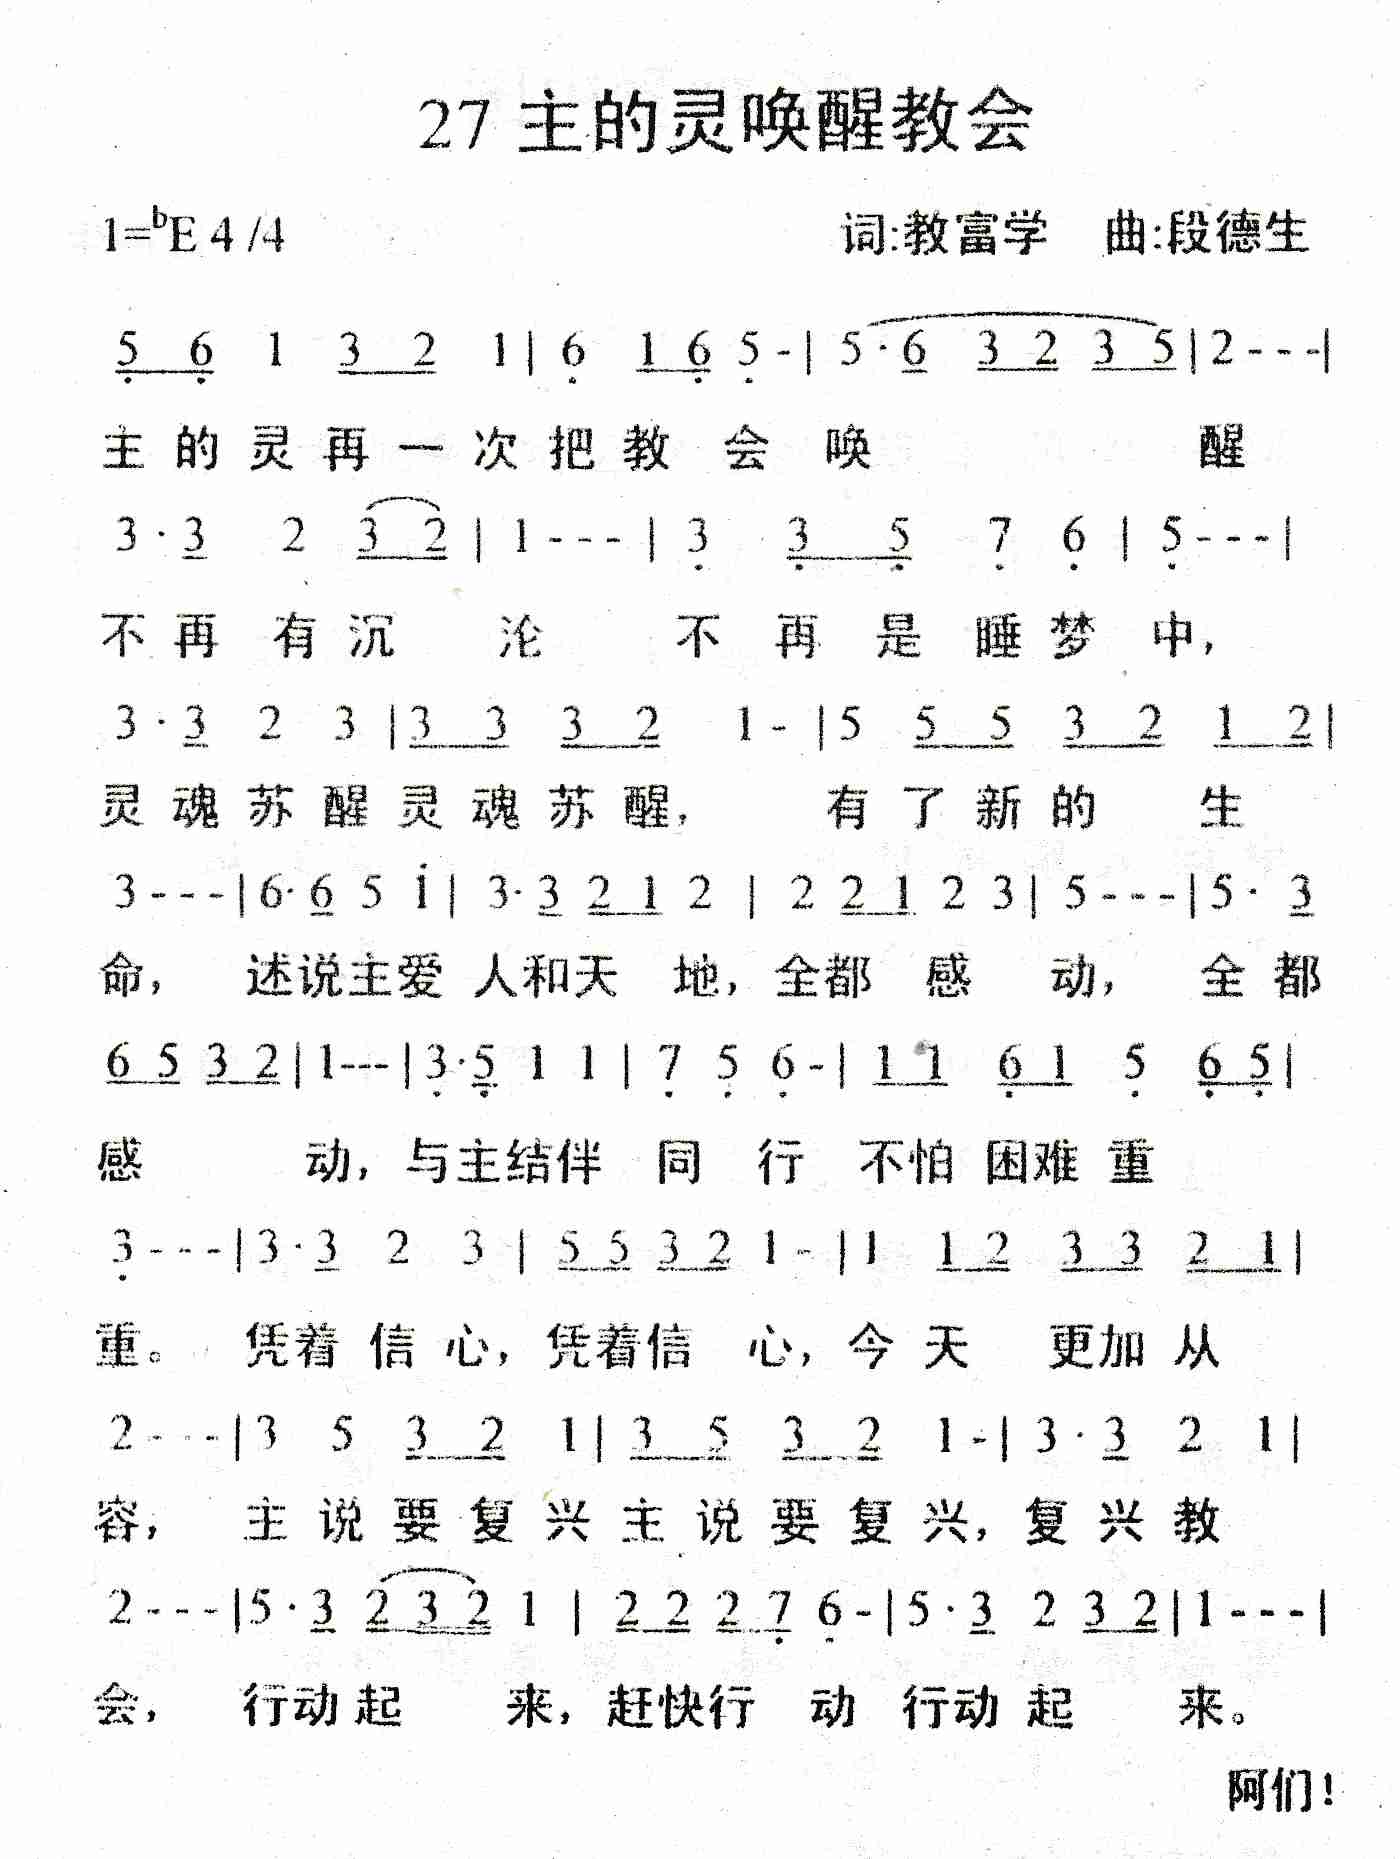 27 主的灵唤醒教会
1=bE 4 /4 词:教富学 曲:段德生
5 6 1 3 2 1 | 6 1 6 5 - | 5 · 6 3 2 3 5 | 2 - - - |
主 的 灵 再 一 次 把 教 会 唤 醒
3 · 3 2 3 2 | 1 - - - | 3 3 5 7 6 | 5 - - - |
不 再 有 沉 沦 不 再 是 睡 梦 中,
3 · 3 2 3 | 3 3 3 2 1 - | 5 5 5 3 2 1 2 |
灵 魂 苏 醒 灵 魂 苏 醒, 有 了 新 的 生
3 - - - | 6· 6 5 i | 3· 3 2 1 2 | 2 2 1 2 3 | 5 - - - | 5 · 3
命, 述说主爱 人和天 地, 全都 感 动, 全 都
6 5 3 2 | 1 - - - | 3 · 5 1 1 | 7 5 6 - | 1 1 6 1 5 6 5 |
感 动, 与主结伴 同 行 不怕 困难 重
3 - - - | 3 · 3 2 3 | 5 5 3 2 1 - | 1 1 2 3 3 2 1 |
重。 凭着 信 心, 凭着信 心, 今 天 更加 从
2 - - - | 3 5 3 2 1 | 3 5 3 2 1 - | 3 · 3 2 1 |
容, 主 说 要 复 兴 主 说 要 复 兴, 复 兴 教
2 - - - | 5 · 3 2 3 2 1 | 2 2 2 7 6 - | 5 · 3 2 3 2 | 1 - - - |
会, 行动 起 来, 赶快行 动 行动 起 来。
阿们!